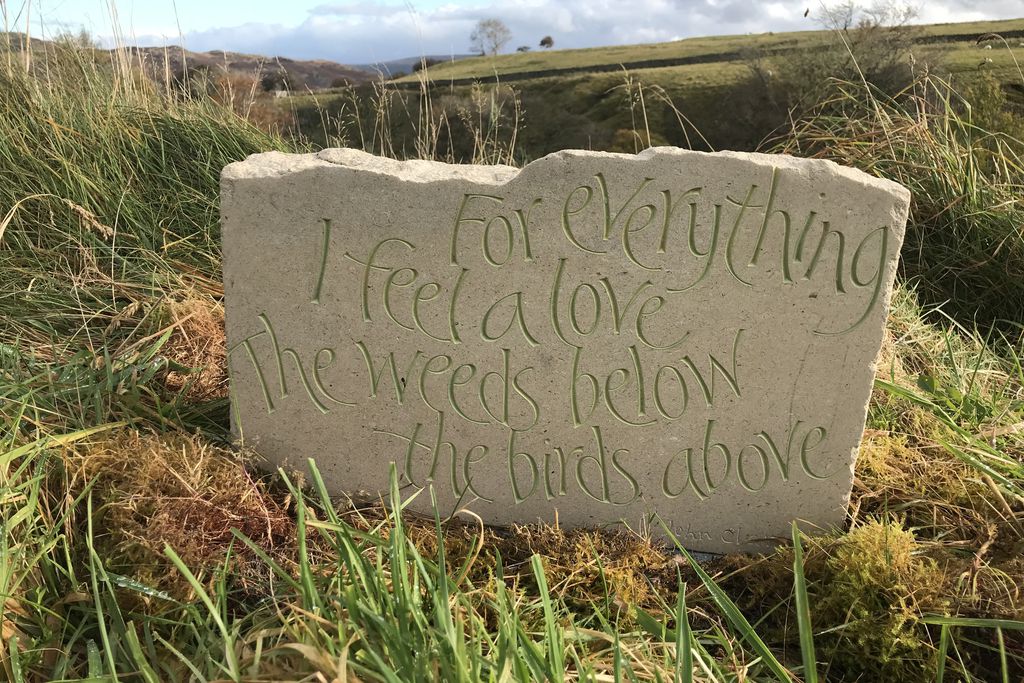 For everything
I feel a love
The weeds below
the birds above
John Cl